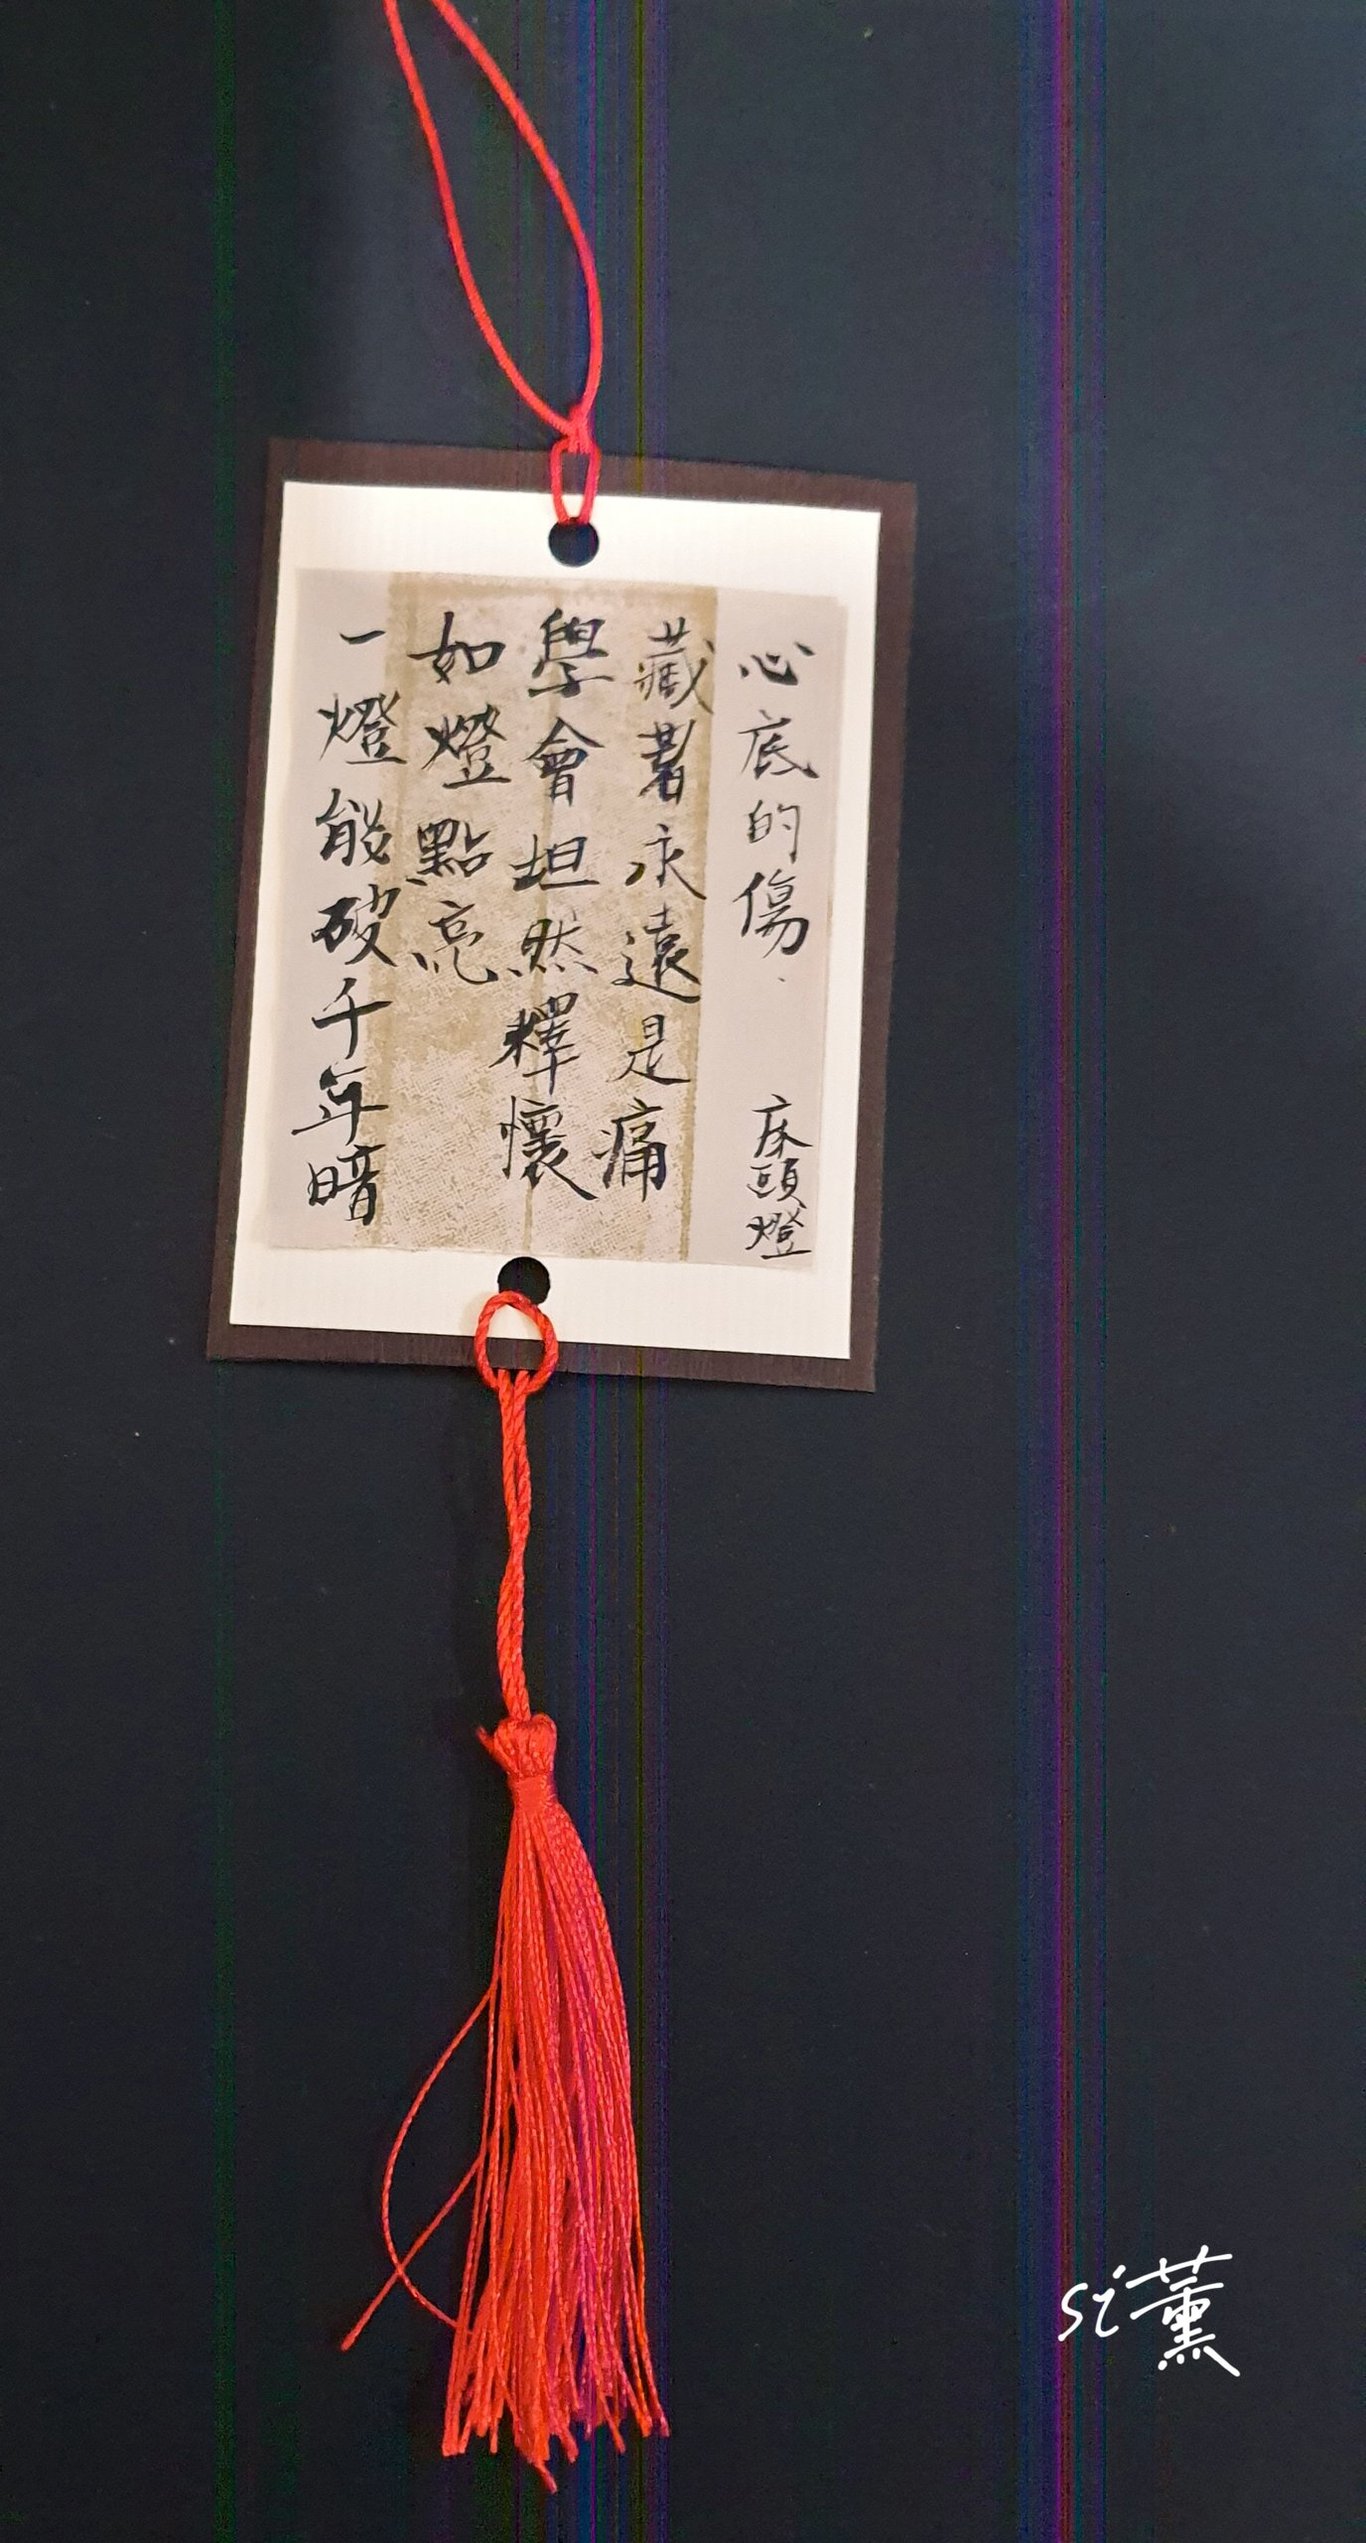 心底的傷
床頭燈
藏著永遠是痛
學會坦然釋懷
如燈點亮
一燈能破千年暗
si薰